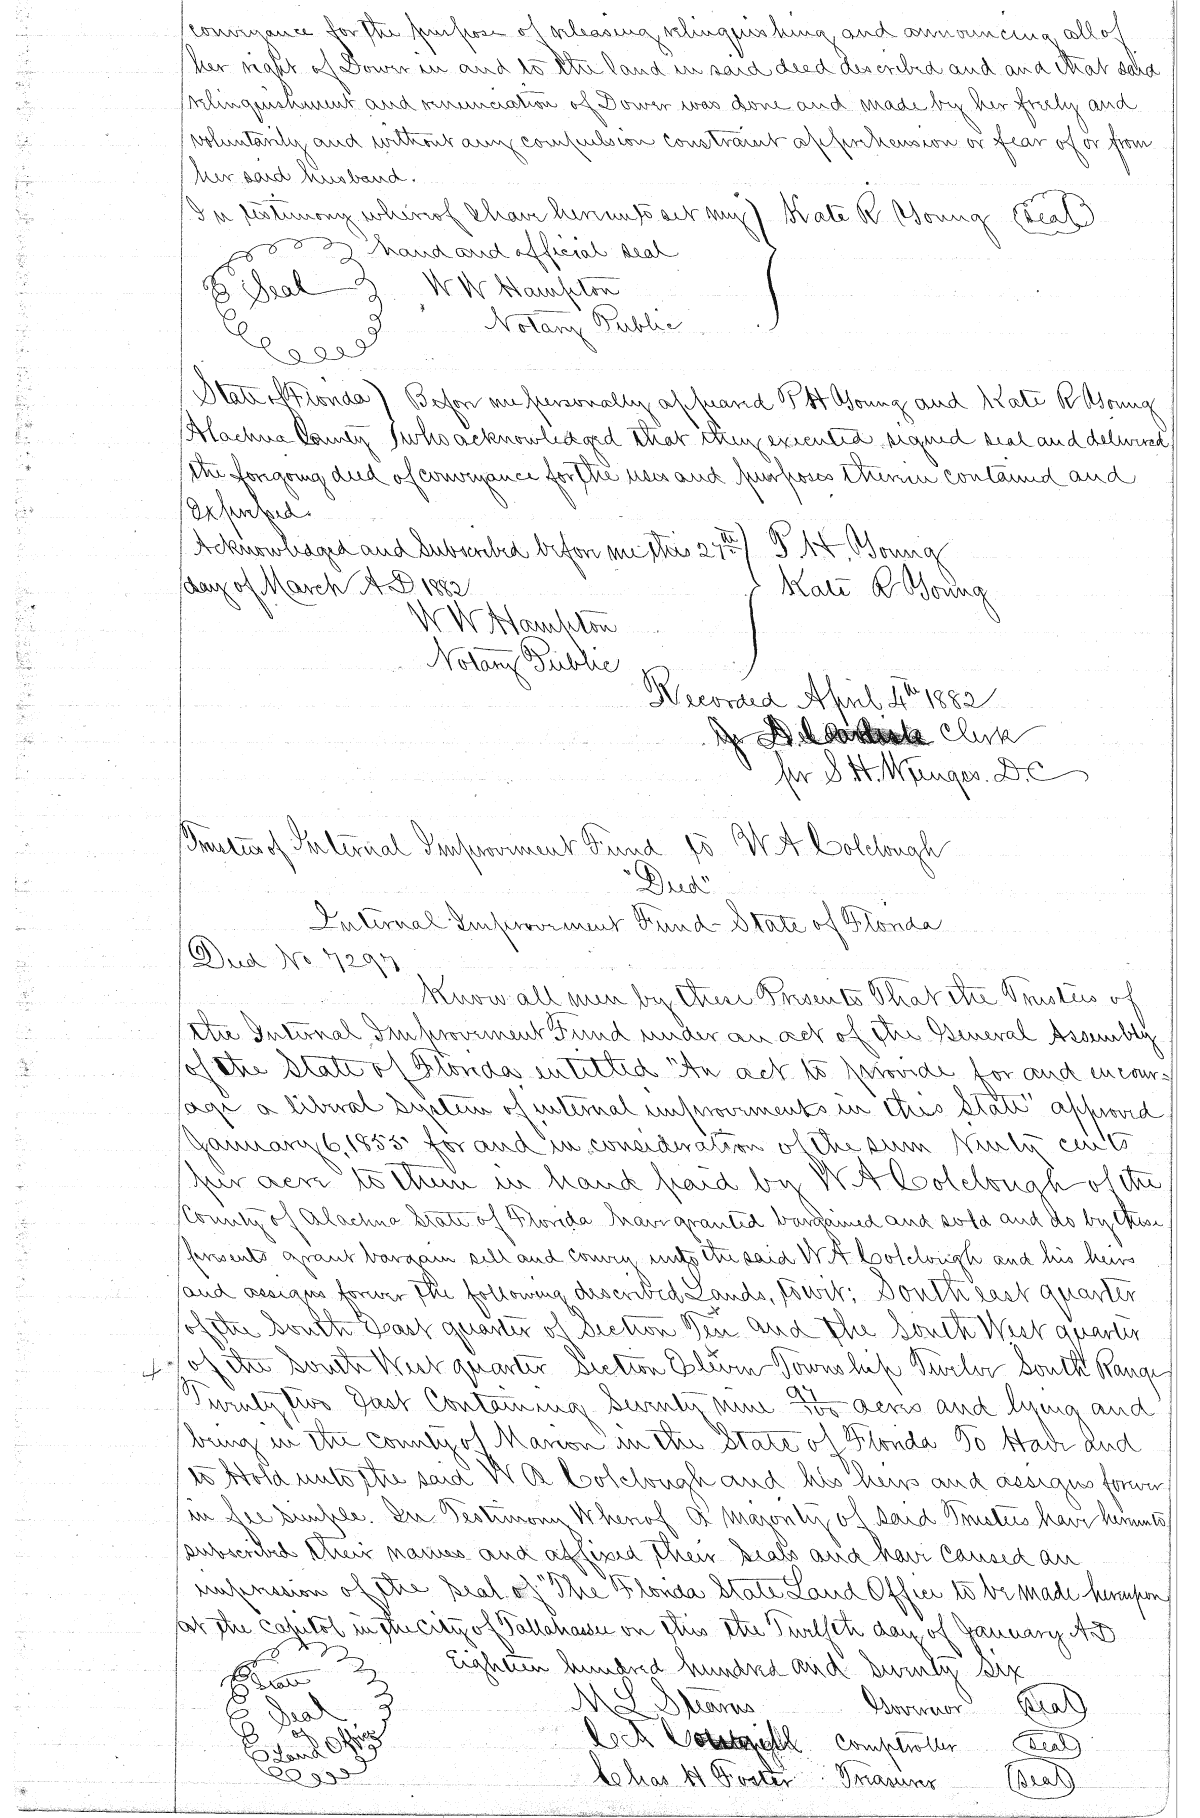 conveyance for the purpose of releasing relinquishing and announcing all of
her right of Dower in and to the land in said deed described and and that said
relinquishment and renunciation of Dower was done and made by her freely and
voluntarily and without any compulsion constraint apprehension or fear of or from
her said husband.
In testimony whereof I have hereunto set my) Kate R Young (Seal)
hand and official seal
Seal W W Hampton
Notary Public
State of Florida) Before me personally appeared P H Young and Kate R Young
Alachua County who acknowledged that they executed signed seal and delivered
the foregoing deed of conveyance for the uses and purposes therein contained and
expressed.
Acknowledged and Subscribed before me this 27th) P. H. Young
day of March A D 1882 Kate R Young
W W Hampton
Notary Public
Recorded April 4th 1882
Clerk
per S H. D.C
Trustees of Internal Improvement Fund to W A Colclough
"Deed"
Internal Improvement Fund - State of Florida
Deed No 7297
Know all men by these Presents That the Trustees of
the Internal Improvement Fund under an act of the General Assembly
of the State of Florida entitled "An act to provide for and encour-
age a liberal System of internal improvements in this State" approved
January 6, 1855 for and in consideration of the sum Ninety cents
per acre to them in hand paid by W A Colclough of the
County of Alachua State of Florida have granted bargained and sold and do by these
presents grant bargain sell and convey unto the said W A Colclough and his heirs
and assigns forever the following described Lands, towit; South east quarter
of the South East quarter of Section Ten and the South West quarter
of the South West quarter Section Eleven Township Twelve South Range
Twenty two East Containing Seventy nine 97/100 acres and lying and
being in the county of Marion in the State of Florida To Have and
to Hold unto the said W A Colclough and his heirs and assigns forever
in fee simple. In Testimony Whereof a majority of said Trustees have hereunto
subscribed their names and affixed their seals and have caused an
impression of the seal of "The Florida State Land Office to be made hereupon
at the Capitol in the city of Tallahassee on this the Twelfth day of January A D
Eighteen hundred hundred and Seventy Six
State Seal of Land Office
M L Stearns Governor (Seal)
Comptroller (Seal)
Chas H Foster Treasurer (Seal)